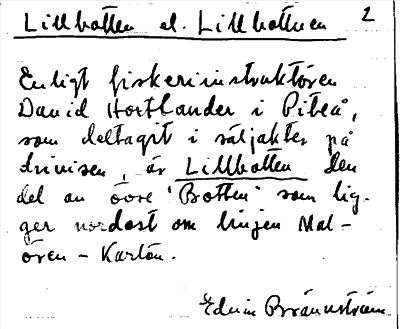 Lillbotten el. Lillbottnen 2
Enligt fiskeriinstruktören
David Hortlander i Piteå,
som deltagit i säljakter på
drivisen, är Lillbotten den
del av övre "Botten" som lig-
ger nordost om linjen Mal-
ören - Karlön.
Edvin Brännström.